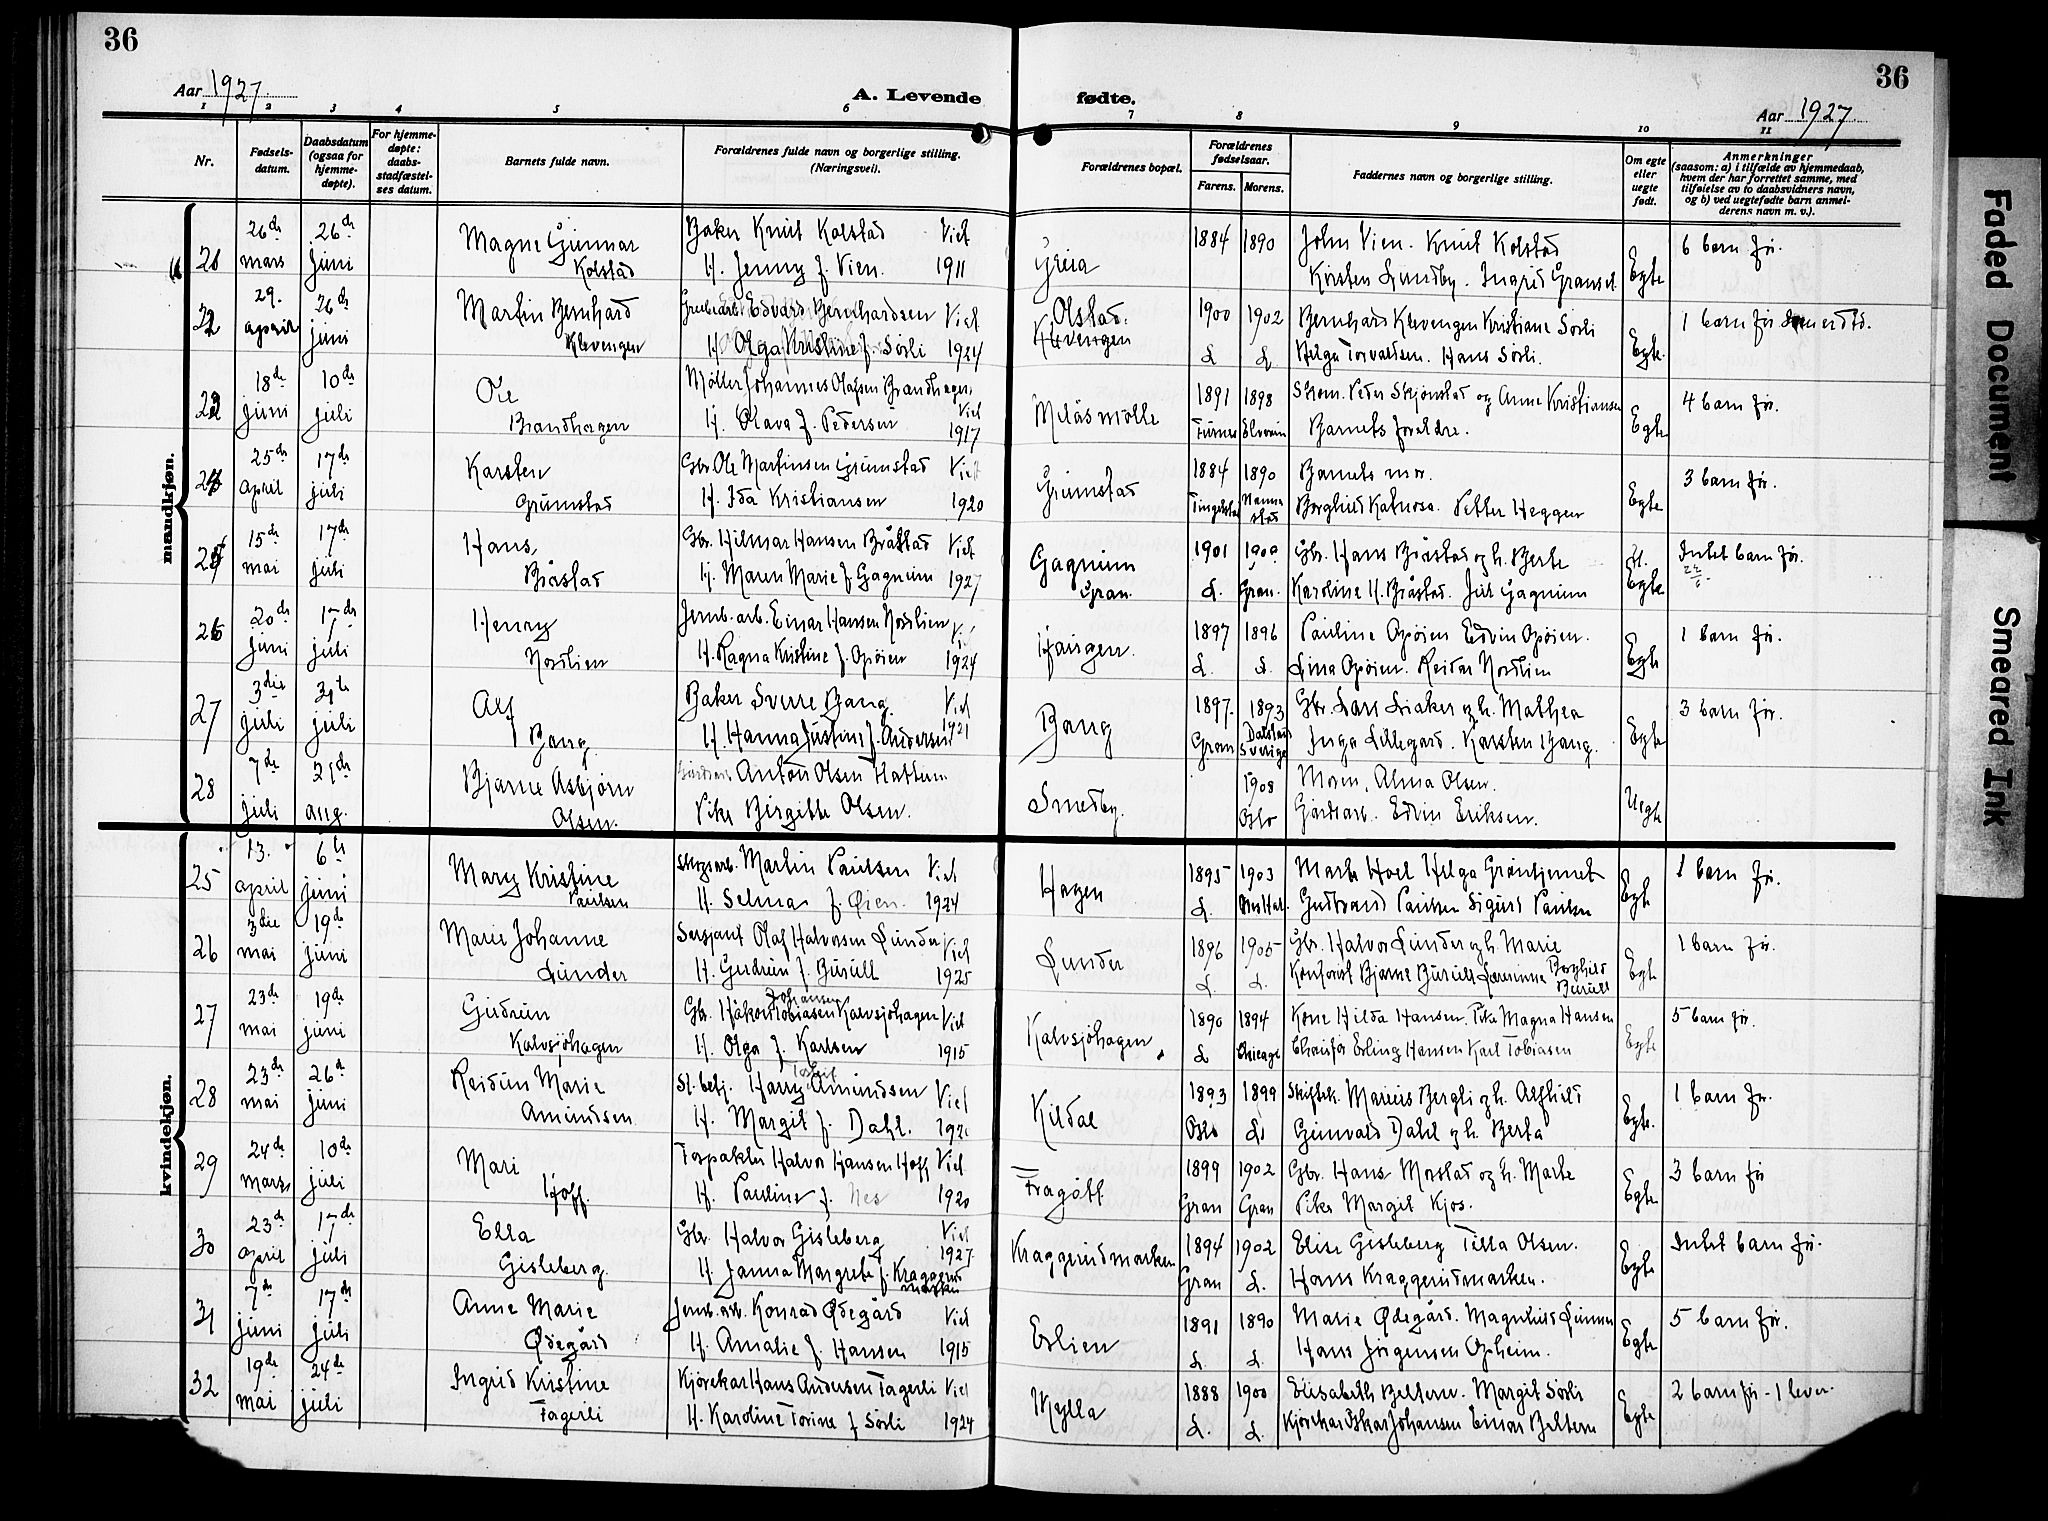 36
36
Aar 1927.
A. Levende fødte.
Aar 1927.
1 2 3 4 5 6 7 8 9 10 11
Nr.
Fødselsdatum.
Daabsdatum (ogsaa for hjemmedøpte).
For hjemmedøpte: daabsstadfæstelses datum.
Barnets fulde navn.
Forældrenes fulde navn og borgerlige stilling. (Næringsvei).
Forældrenes bopæl.
Forældrenes fødselsaar.
Farens. Morens.
Faddernes navn og borgerlige stilling.
Om egte eller uegte født.
Anmerkninger
(saasom: a) i tilfælde av hjemmedaab,
hvem der har forrettet samme, med
tilføielse av to daabsvidners navn,
og b) ved uegtefødte barn anmelderens navn m. v.).
mandkjøn.
21 26de mars 26de juni Magne Gunnar Kolstad Baker Knut Kolstad Viet Greia 1884 1890 John Vien. Knut Kolstad Egte 6 barn før.
H. Jenny f. Vien. 1911 Kirsten Lundby. Ingrid
22 29. april 26de juni Martin Bernhard Klevengen Edvard Bernhardsen Viet Olstad. Klevengen 1900 1902 Bernhard Klevengen Kristiane Sørli Egte. 1 barn før
H. Olga Kristine f. Sørli 1924 L. L. Helga Torvaldsen. Hans Sørli.
23 18de juni 10de juli Ole Brandhagen Møller Johannes Olafsen Brandhagen Viet 1891 1898 Skom. Peder Skjønstad og Anne Kristiansen Egte 4 barn før.
H. Olava f. Pedersen 1917 Furnes Elverum Barnets foreldre.
24 25de april 17de juli Karsten Grumstad Gbr. Ole Martinsen Grumstad Viet Grumstad 1884 1890 Barnets mor. Egte 3 barn før.
H. Ida Kristiansen 1920 Tingelstad Borghild Petter Heggen
25 15de mai 17de juli Hans Bråstad Gbr. Hilmar Hansen Bråstad Viet Gagnum Gran. 1901 1900 Gbr. Hans Bråstad og h. Berte Egte Intet barn før.
H. Maren Marie f. Gagnum 1927 L. Gran. Karoline H. Bråstad. Gagnum
26 20de juni 17de juli Henry Nordlien Jernb.arb. Einar Hansen Nordlien Viet Haugen. 1897 1896 Pauline Opøien Edvin Opøien. Egte 1 barn før.
H. Ragna Kristine f. Opøien 1924 L. L. Lina Opøien. Reidar Nordlien
27 3die juli 31te juli Alf Bang Baker Sverre Bang Viet Bang 1897. 1893 Gbr. Lars Liaker og h. Mathea Egte 3 barn før.
H. Hanna Justine f. Andersen 1921 Gran Sverige Inga Lillegard. Karsten Bang.
28 7de juli 21de aug. Bjarne Asbjørn Olsen. Anton Olsen Smedby. 1908 Moren, Alma Olsen. Uegte
Pike Birgitte Olsen. Oslo Gårdsarb. Edvin Eriksen.
kvindekjøn.
25 13. april 6te juni Mary Kristine Paulsen Skogsarb. Martin Paulsen Viet Hagen 1895 1903 Marte Hoel Helga Egte 1 barn før.
H. Selma f. Øien. 1924 L. Gudbrand Paulsen Sigurd Paulsen
26 3die mai 19de juni Marie Johanne Lunder Sersjant Olaf Halvorsen Lunder Viet Lunder 1896 1905 Gbr. Halvor Lunder og h. Marie Egte 1 barn før.
H. Gudrun f. Burull 1925 L. L. Kontorist Bjarne Burull Lærerinne Borghild Burull
27 23de mai 19de juni Gudrun Kalvsjøhagen Gbr. Håkon Johansen Tobiasen Kalvsjøhagen Viet Kalvsjøhagen 1890 1894 Kone Hilda Hansen. Pike Magna Hansen Egte 5 barn før.
H. Olga f. Karlsen 1915 L Chicago Chaufør Erling Hansen Karl Tobiasen
28 23de mai 26de juni Reidun Marie Amundsen St. betj. Harry Amundsen Viet Kildal 1893 1899 Marius Bergli og h. Alfhild Egte. 1 barn før.
H. Margit f. Dahl. 1921 Oslo L. Gunvald Dahl og h. Berta
29 24de mars 10de juli Mari Hoff. Halvor Hansen Hoff Viet Fragått 1899 1902 Gbr. Hans Morstad og h. Marte Egte 3 barn før
H. Pauline f. Nes 1920 Gran Gran Pike Margit Kjos.
30 23de april 17de juli Ella Gisleberg. Gbr. Halvor Gisleberg Viet 1927. Kraggerudmarken 1894 1902 Elise Gisleberg Tilla Olsen. Egte Intet barn før.
H. Janna Margrete f. Kraggerudmarken Gran L. Hans Kraggerudmarken.
31 7de juni 17de juli Anne Marie Ødegård Jernb. arb. Konrad Ødegård Viet Eslien 1891 1890 Marie Ødegård. Magnhild Lunner Egte 5 barn før.
H. Amalie f. Hansen 1915 L. L. Hans Jørgensen Opheim.
32 19de mai 24de juli Ingrid Kristine Fagerli Kjørekar Hans Andersen Fagerli Viet Mylla 1888 1900 Elisabeth Margit Sørli Egte 2 barn før - 1 lever.
H. Karoline Torine f. Sørli 1924 L. L. Kjørekar Oskar Johansen Einar
Faded Document
Smeared Ink